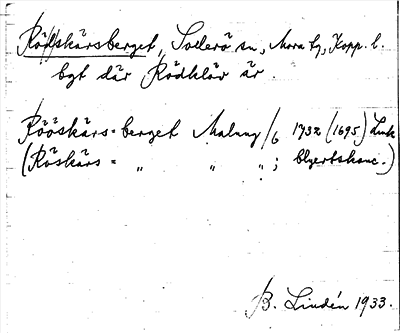 Rödskärsberget, Sollerö sn, Mora tg, Kopp. l.
bgt där Rödklär är.
Rööskärs=berget Malung /6 1732 (1695) Lmk
(Röskärs = " " " ; blyertskonc.)
B. Lindén 1933.